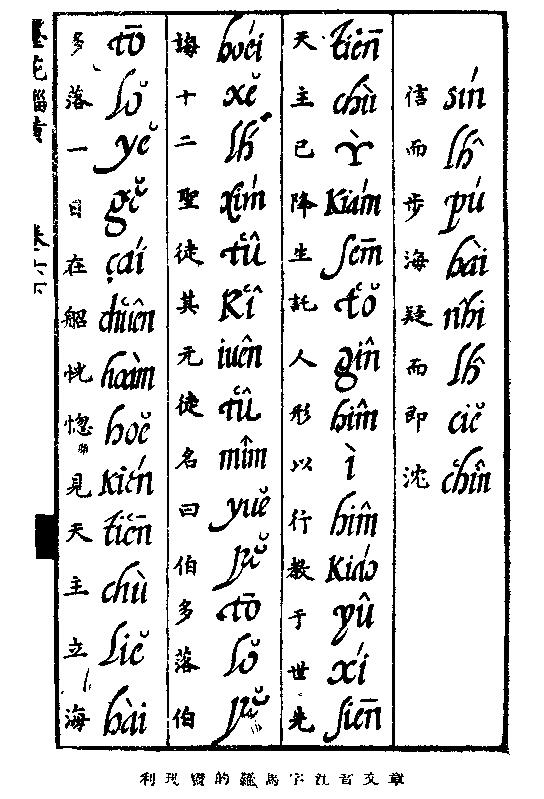 信而步海疑而即沈
sín lĥ pú hài nhî lĥ ciĕ c̔hîn
天主已降生託人形以行教于世先
t̔iēn chù ỳ kiám sēm t̔ŏ gîn hîm ì hîm kiáo yû xí siēn
誨十二聖徒其元徒名曰伯多落伯
hoéi xĕ lh́ xím t̔û k̔î iuên t̔û mîm yuĕ pĕ tō lŏ pĕ
多落一日在船恍惚見天主立海
tō lŏ yĕ gĕ çái c̔huên hoàm hoĕ kién t̔iēn chù liĕ hài
墨苑緇黃 卷六下
利瑪竇的羅馬字注音文章